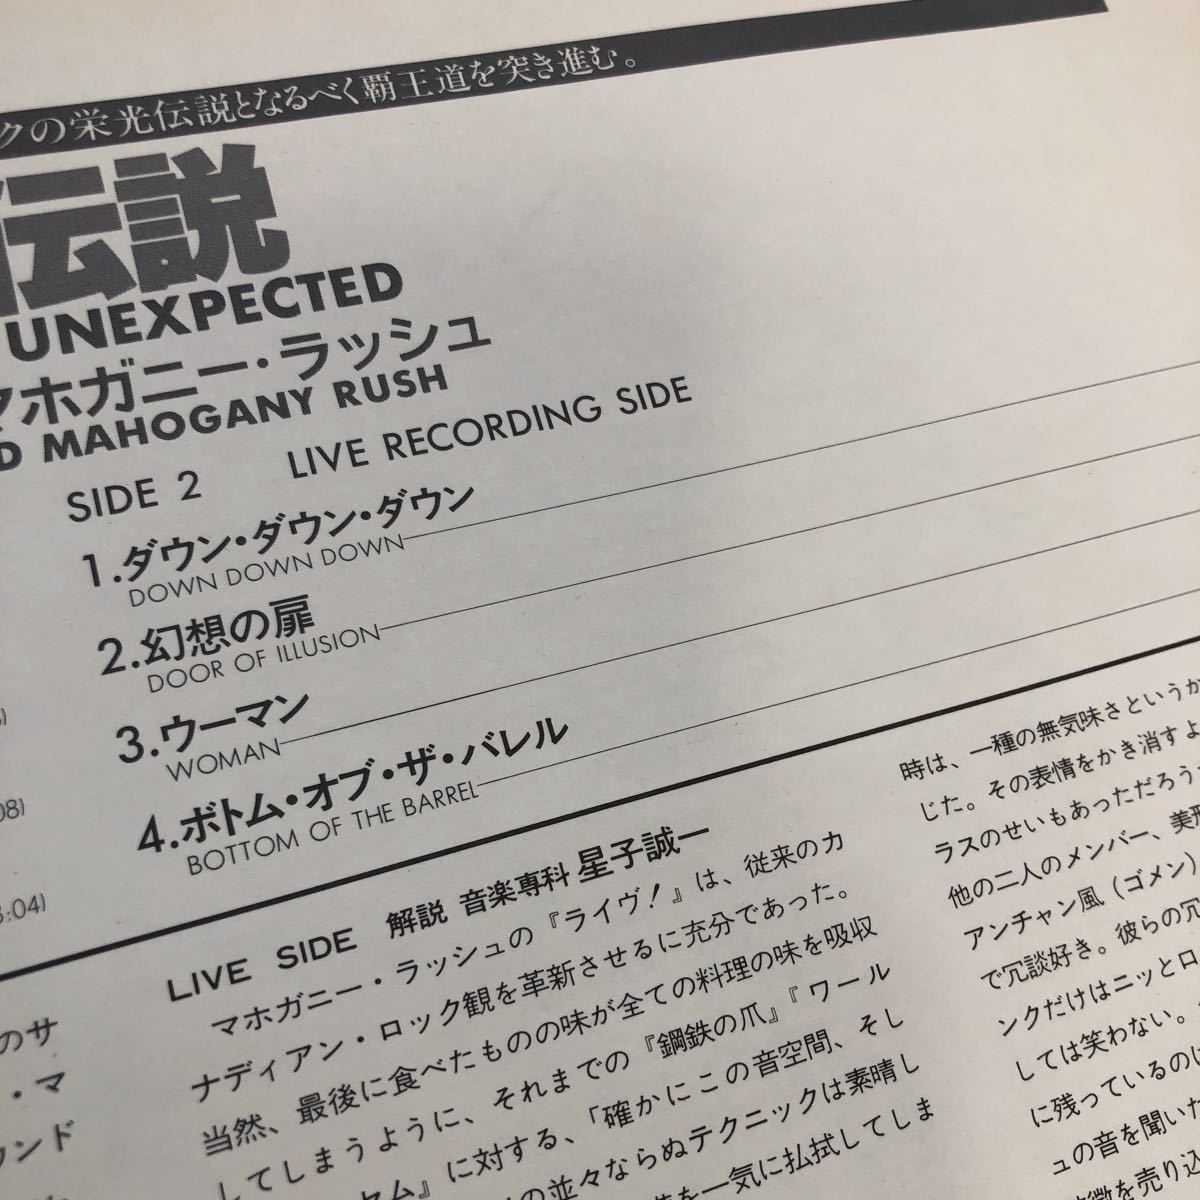 クの栄光伝説となるべく覇王道を突き進む。
伝説
UNEXPECTED
マホガニー・ラッシュ
D MAHOGANY RUSH
SIDE 2 LIVE RECORDING SIDE
1.ダウン・ダウン・ダウン
DOWN DOWN DOWN
2.幻想の扉
DOOR OF ILLUSION
3.ウーマン
WOMAN
4.ボトム・オブ・ザ・バレル
BOTTOM OF THE BARREL
08)
:04)
のサ
・マ
ウンド
LIVE SIDE 解説 音楽専科 星子誠一
マホガニー・ラッシュの『ライヴ!』は、従来のカ
ナディアン・ロック観を革新させるに充分であった。
当然、最後に食べたものの味が全ての料理の味を吸収
してしまうように、それまでの『鋼鉄の爪』『ワール
』に対する、「確かにこの音空間、そし
の並々ならぬテクニックは素晴し
を一気に払拭してしま
時は、一種の無気味さというか
じた。その表情をかき消すよ
ラスのせいもあっただろう
他の二人のメンバー、美形
アンチャン風(ゴメン)
で冗談好き。彼らの冗
ンクだけはニッとロ
しては笑わない。
に残っているのは
ュの音を聞いた
徴を売り込